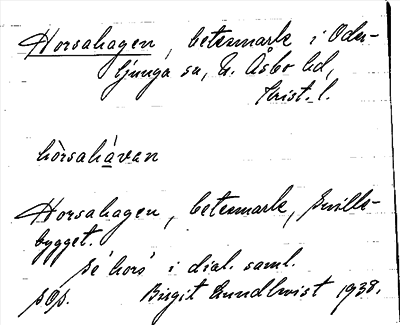 Horsahagen, betesmark i Oder-
ljunga sn, N. Åsbo hd,
Krist. l.
hòrsahávan
Horsahagen, betesmark,
bygget.
Se' hors' i dial. saml.
Birgit Lundkvist 1938.